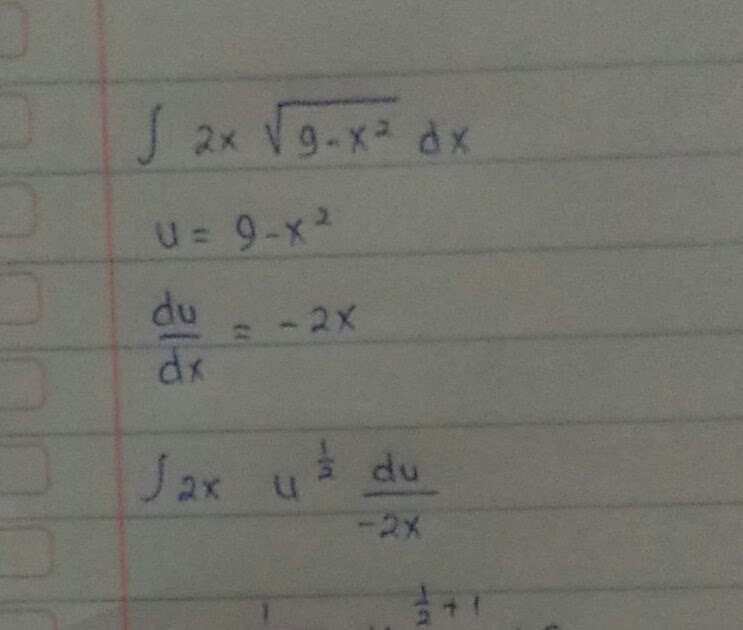 ∫ 2x √(9-x²) dx
u = 9-x²
du/dx = -2x
∫ 2x u^(1/2) du/-2x
1 1/2 + 1